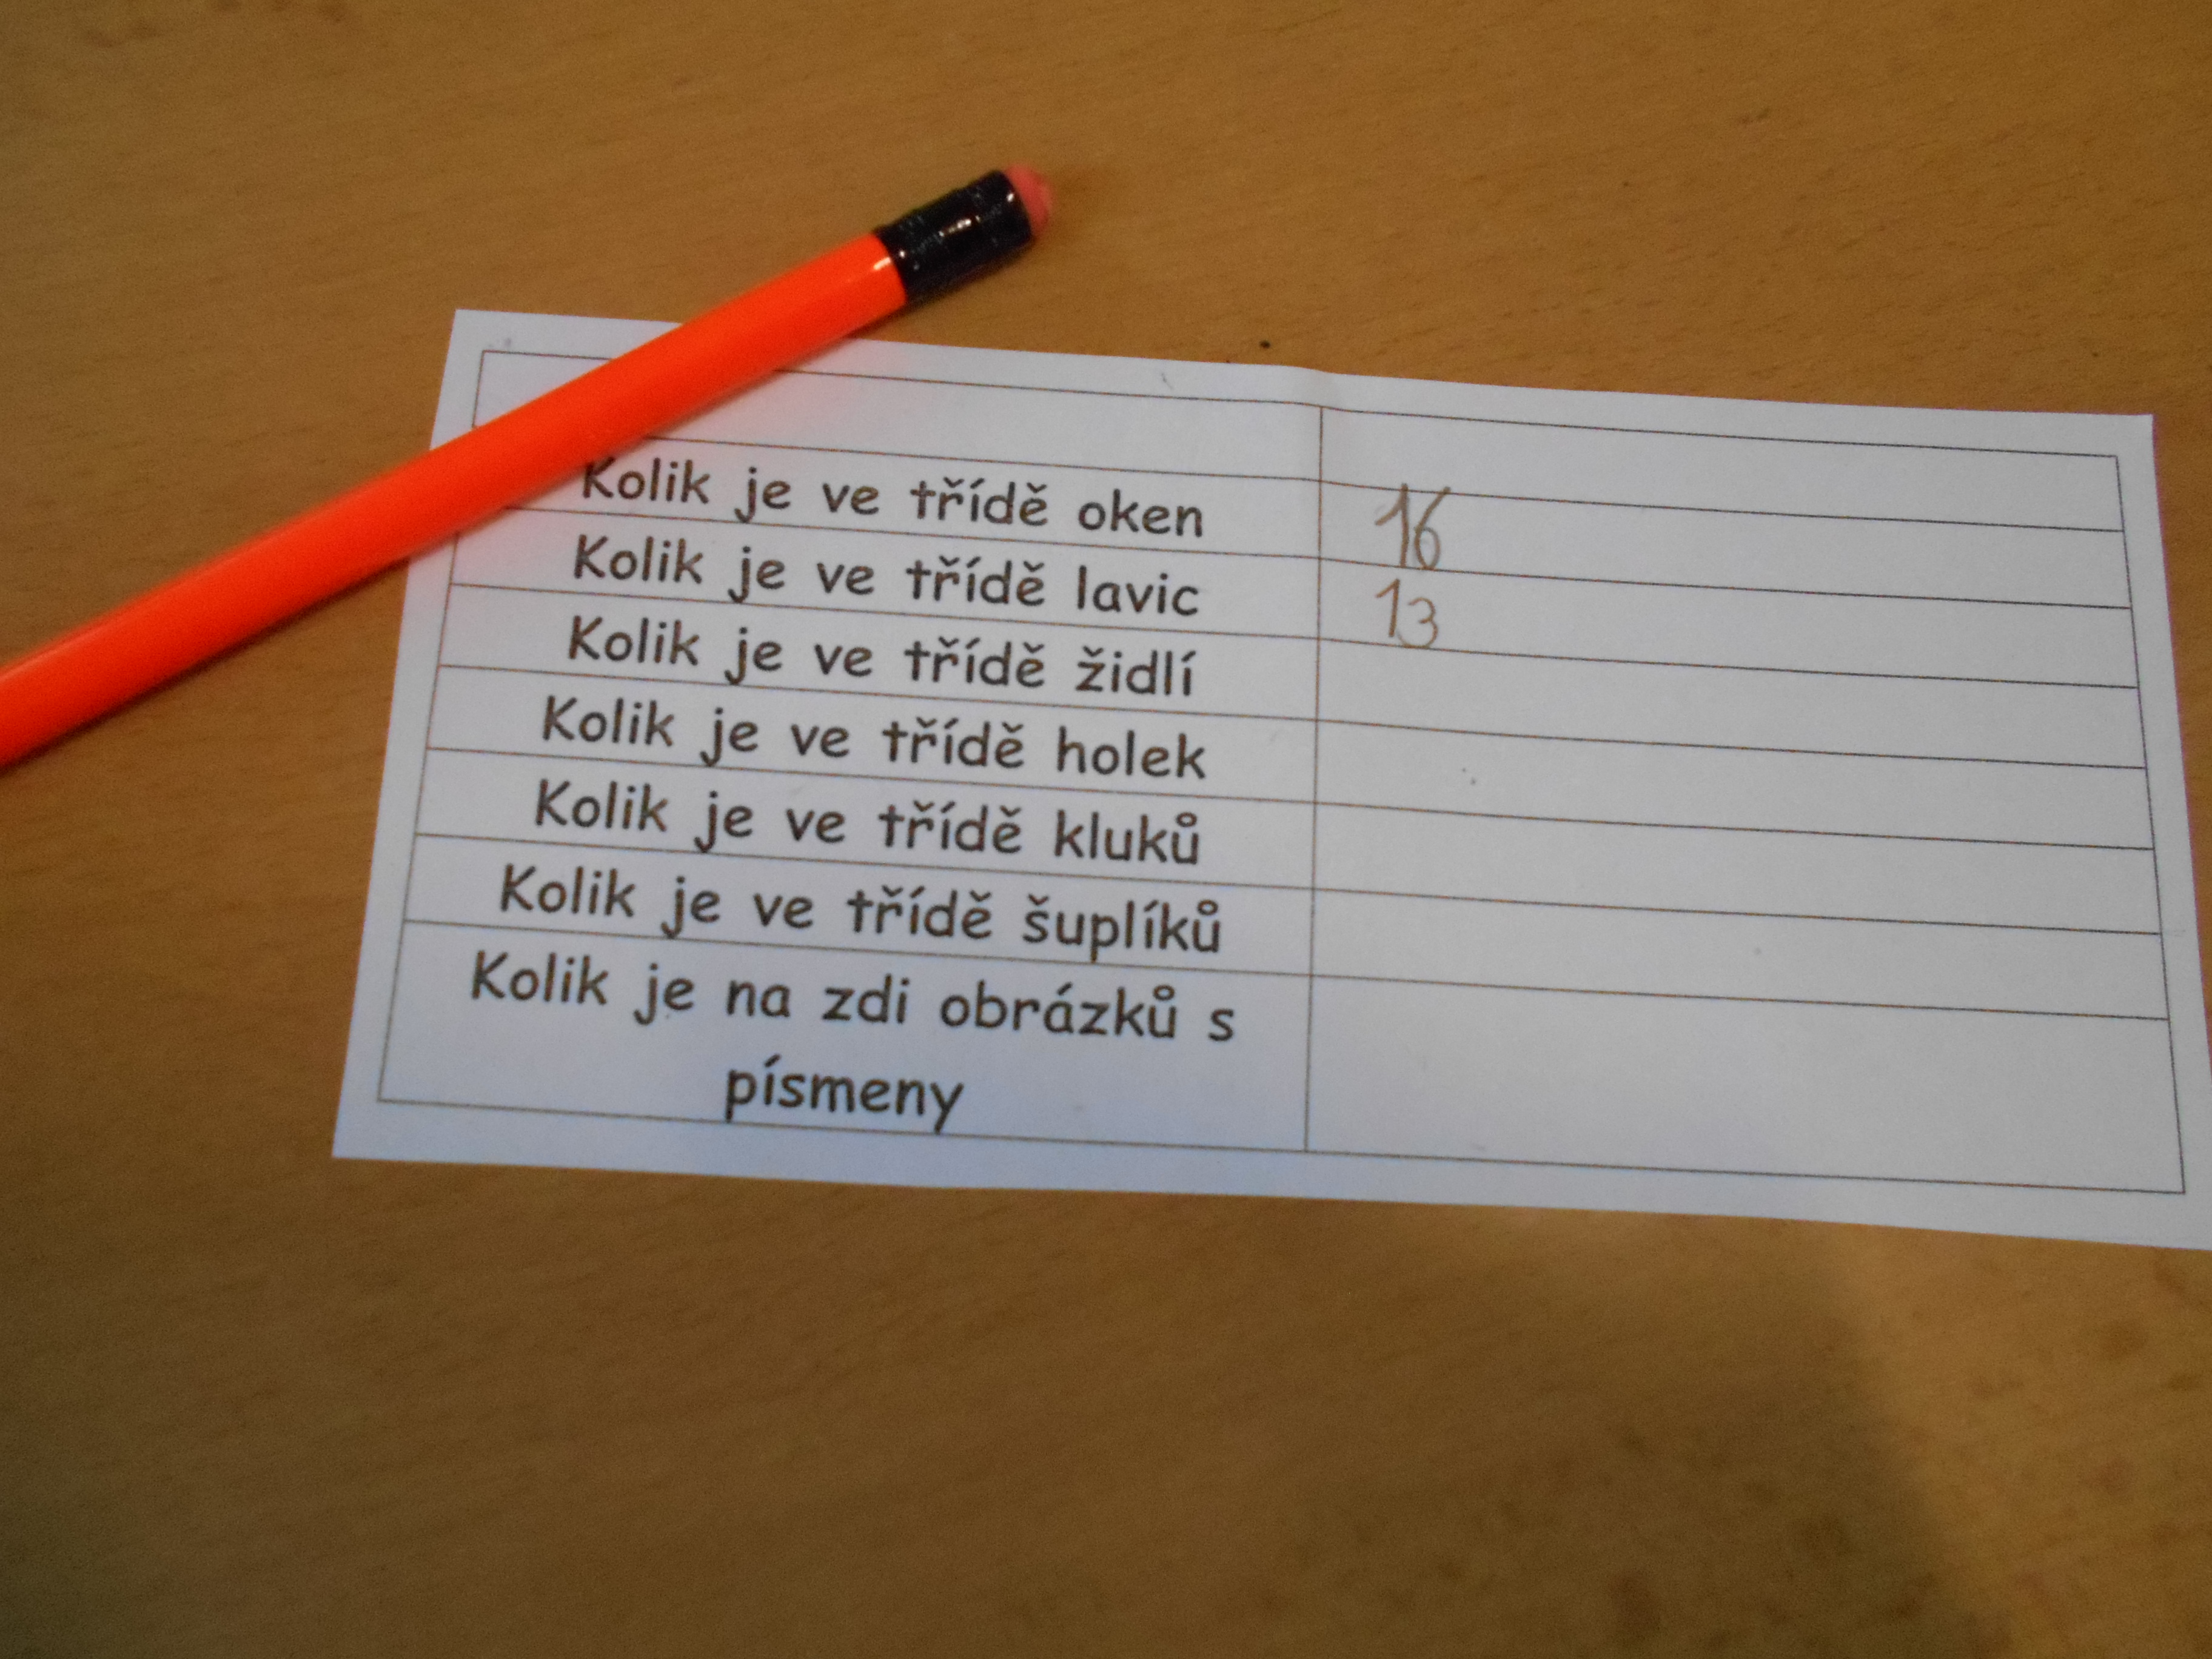 Kolik je ve třídě oken 16
Kolik je ve třídě lavic 13
Kolik je ve třídě židlí
Kolik je ve třídě holek
Kolik je ve třídě kluků
Kolik je ve třídě šuplíků
Kolik je na zdi obrázků s
písmeny